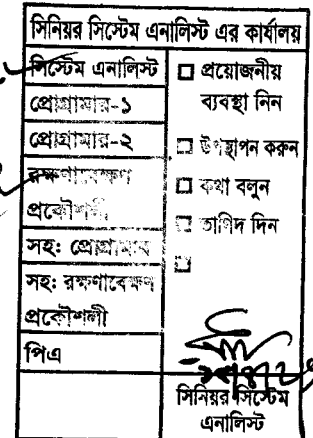 সিনিয়র সিস্টেম এনালিস্ট এর কার্যালয়
সিস্টেম এনালিস্ট
প্রোগ্রামার-১
প্রোগ্রামার-২
রক্ষণাবেক্ষণ
প্রকৌশলী
সহ: প্রোগ্রামার
সহ: রক্ষণাবেক্ষণ
প্রকৌশলী
পিএ
প্রয়োজনীয়
ব্যবস্থা নিন
উপস্থাপন করুন
কথা বলুন
তাগিদ দিন
সিনিয়র সিস্টেম
এনালিস্ট